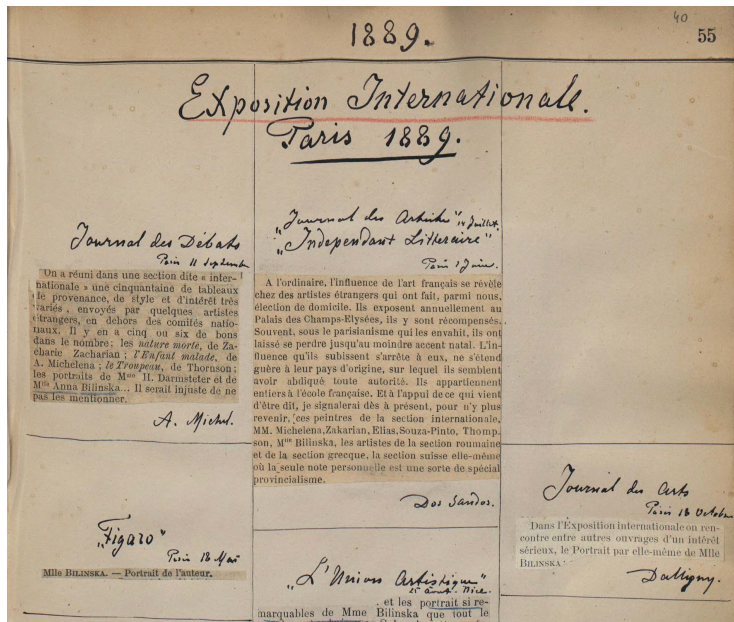 40
1889.
55
Exposition Internationale.
Paris 1889.
Journal des Débats
Paris 11 Septembre
On a réuni dans une section dite « inter-
nationale » une cinquantaine de tableaux
de provenance, de style et d'intérêt très
variés, envoyés par quelques artistes
étrangers, en dehors des comités natio-
naux. Il y en a cinq ou six de bons
dans le nombre; les nature morte, de Za-
charie Zacharian; l'Enfant malade, de
A. Michelena; le Troupeau, de Thornson;
les portraits de Mme H. Darmsteter et de
Mlle Anna Bilinska... Il serait injuste de ne
pas les mentionner.
A. Michel.
„Figaro"
Paris 18 Mai
Mlle BILINSKA. — Portrait de l'auteur.
„Journal des Artistes" 14 Juillet.
„Independant Litteraire"
Paris 1 Juin.
A l'ordinaire, l'influence de l'art français se révèle
chez des artistes étrangers qui ont fait, parmi nous,
élection de domicile. Ils exposent annuellement au
Palais des Champs-Elysées, ils y sont récompensés.
Souvent, sous le parisianisme qui les envahit, ils ont
laissé se perdre jusqu'au moindre accent natal. L'in-
fluence qu'ils subissent s'arrête à eux, ne s'étend
guère à leur pays d'origine, sur lequel ils semblent
avoir abdiqué toute autorité. Ils appartiennent
entiers à l'école française. Et à l'appui de ce qui vient
d'être dit, je signalerai dès à présent, pour n'y plus
revenir, ces peintres de la section internationale,
MM. Michelena, Zakarian, Elias, Souza-Pinto, Thomp-
son, Mlle Bilinska, les artistes de la section roumaine
et de la section grecque, la section suisse elle-même
où la seule note personnelle est une sorte de spécial
provincialisme.
Dos Sandos.
„L'Union Artistique"
25 Aout. Nice.
, et les portrait si re-
marquables de Mme Bilinska que tout le
Journal des Arts
Paris 18 Octobre
Dans l'Exposition internationale on ren-
contre entre autres ouvrages d'un intérêt
sérieux, le Portrait par elle-même de Mlle
BILINSKA
Dalligny.